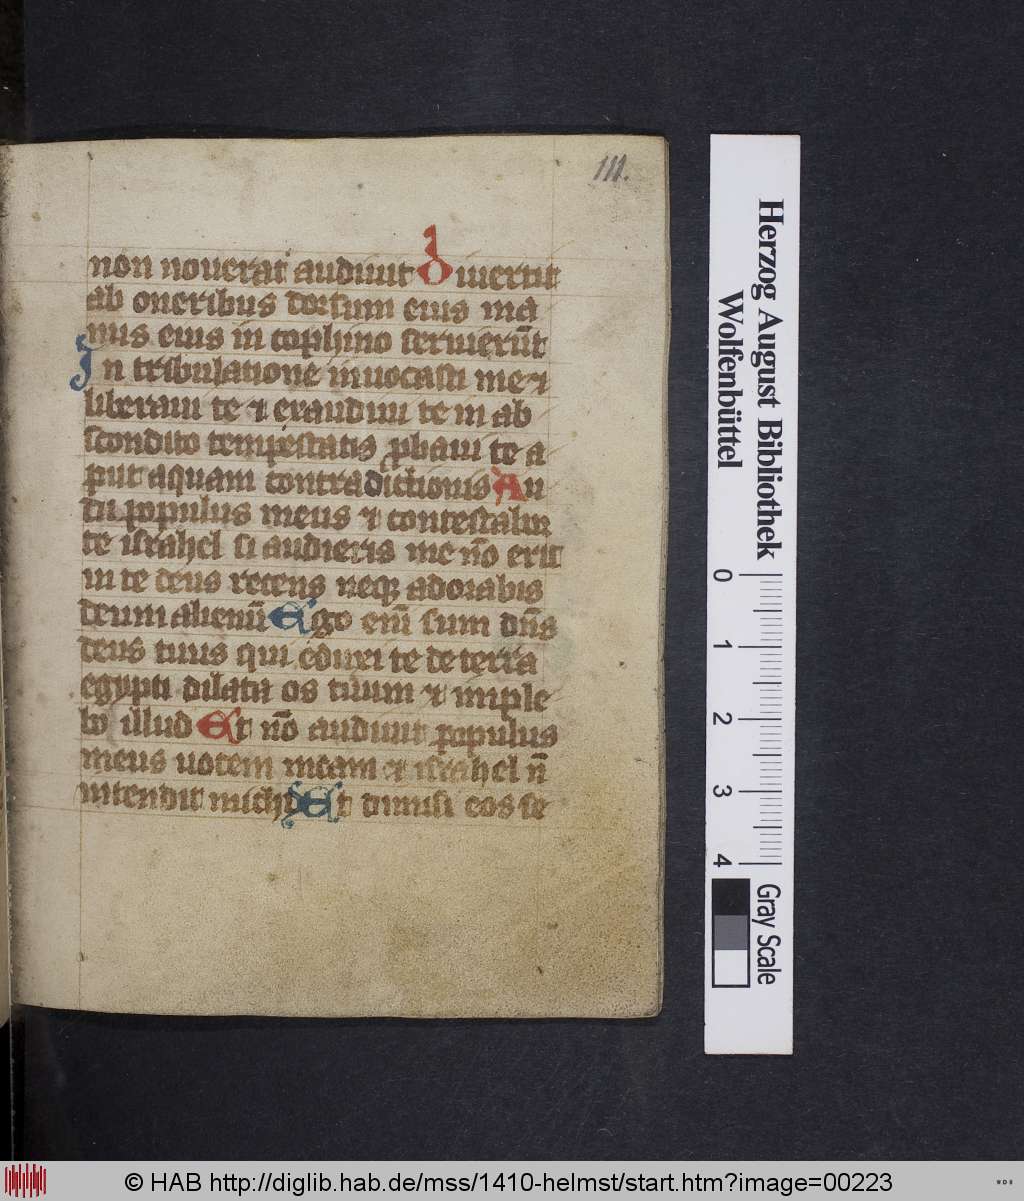 111.
non nouerat audiuit Diuertit
ab oneribus dorsum eius ma
nus eius in cophino seruierūt
In tribulatione inuocasti me ⁊
liberaui te ⁊ exaudiui te in ab
scondito tempestatis ꝓbaui te a
put aquam contradictionis Au
di populus meus ⁊ contestabor
te israhel si audieris me nō erit
in te deus recens neqꝫ adorabis
deum alienū Ego enī sum dn̄s
deus tuus qui eduxi te de terra
egypti dilata os tuum ⁊ imple
bo illud Et nō audiuit populus
meus uocem meam ⁊ israhel n̄
intendit michi Et dimisi eos se
Herzog August Bibliothek
Wolfenbüttel
0 1 2 3 4
Gray Scale
© HAB http://diglib.hab.de/mss/1410-helmst/start.htm?image=00223